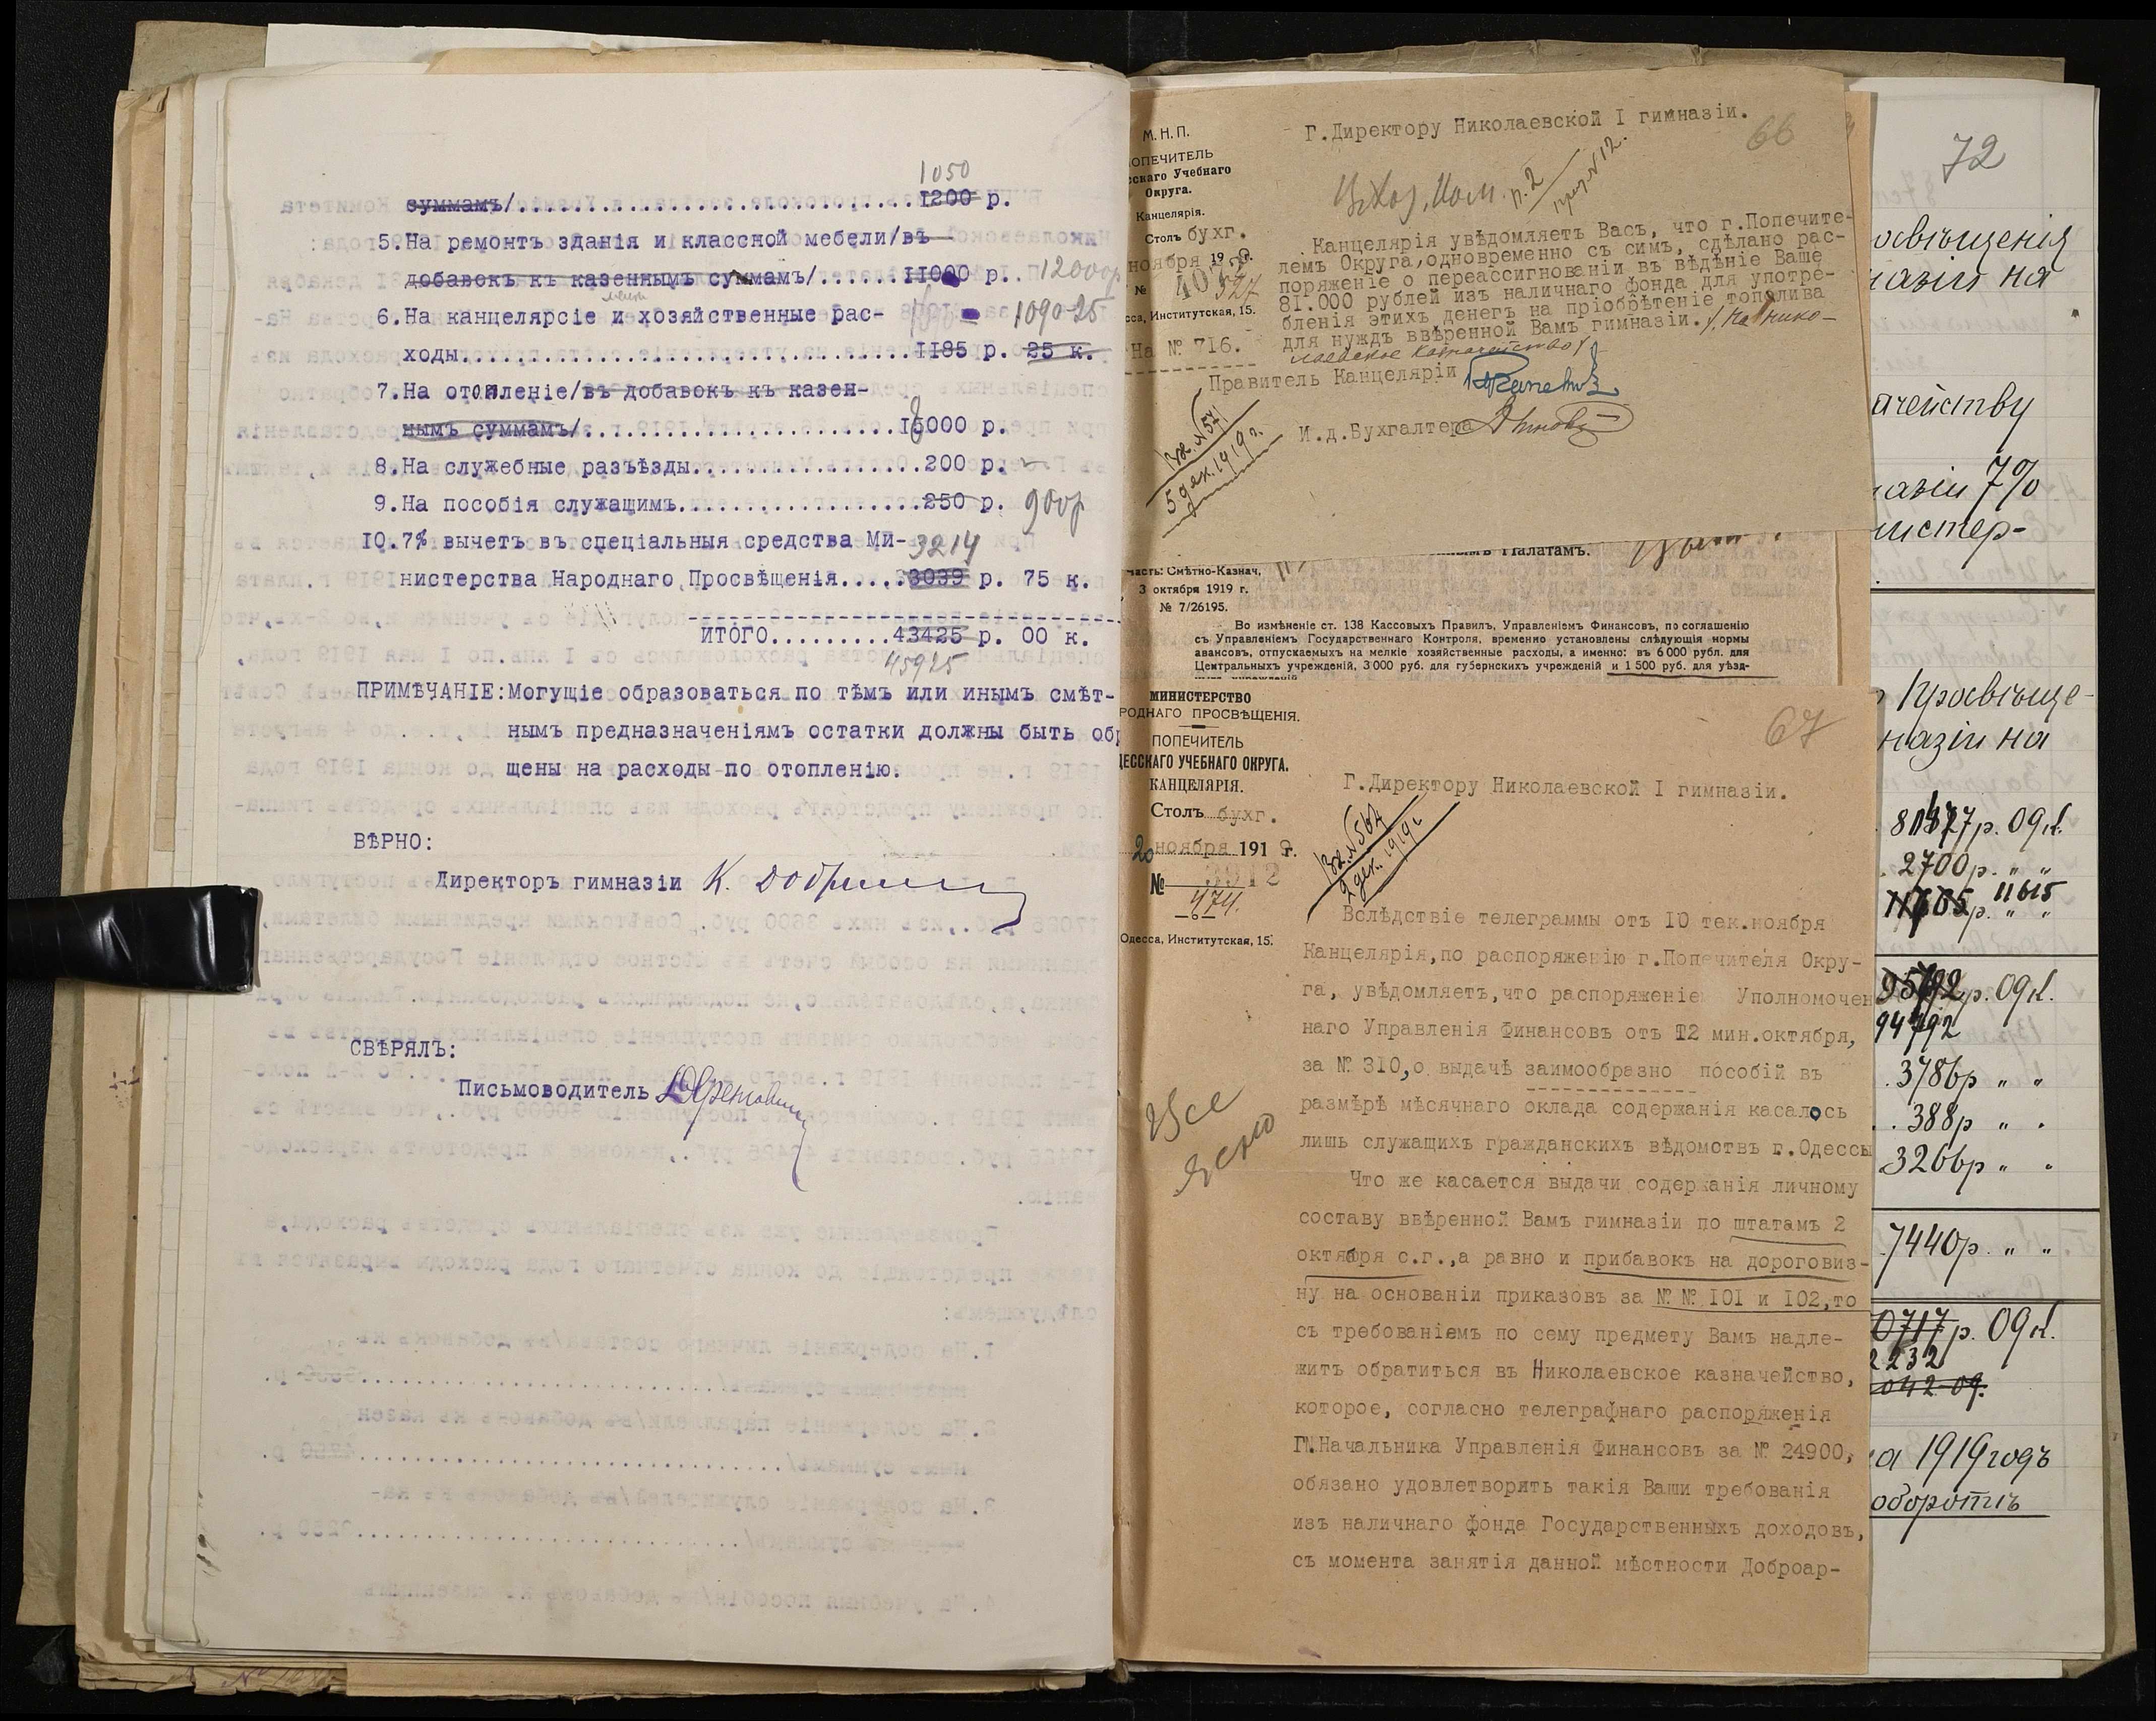 1050
суммамъ/...............................1200 р.
5.На ремонтъ зданія и классной мебели/въ
добавокъ къ казеннымъ суммамъ/......11000 р. 12000р
6.На канцелярсіе и хозяйственные рас-
ходы...................................1185 р. 25 к. 1090-25
7.На отопленіе/въ добавокъ къ казен-
нымъ суммамъ/........................15000 р.
8.На служебные разъѣзды..................200 р.
9.На пособія служащимъ...................250 р. 900р
10.7% вычетъ въ спеціальныя средства Ми- 3214
нистерства Народнаго Просвѣщенія.....3039 р. 75 к.
ИТОГО.........43425 р. 00 к.
45925
ПРИМѢЧАНІЕ:Могущіе образоваться по тѣмъ или инымъ смѣт-
нымъ предназначеніямъ остатки должны быть обр
щены на расходы по отопленію.
ВѢРНО:
Директоръ гимназіи
СВѢРЯЛЪ:
Письмоводитель
М. Н. П.
ОПЕЧИТЕЛЬ
сскаго Учебнаго
Округа.
Канцелярія.
Столъ бухг.
ноября 19
№
527
сса, Институтская, 15.
На № 716.
Г.Директору Николаевской I гимназіи.
66
Канцелярія увѣдомляетъ Васъ, что г.Попечите-
лемъ Округа,одновременно съ симъ, сдѣлано рас-
поряженіе о переассигнованіи въ вѣдѣніе Ваше
81.000 рублей изъ наличнаго фонда для употре-
бленія этихъ денегъ на пріобрѣтеніе топлива
для нуждъ ввѣренной Вамъ гимназіи./На Нико-
лаевское казначейство/
Правитель Канцеляріи
И.д.Бухгалтера
Вх. №571
5 дек. 1919 г.
нымъ Палатамъ.
часть: Смѣтно-Казнач,
3 октября 1919 г.
№ 7/26195.
Во измѣненіе ст. 138 Кассовыхъ Правилъ, Управленіемъ Финансовъ, по соглашенію
съ Управленіемъ Государственнаго Контроля, временно установлены слѣдующія нормы
авансовъ, отпускаемыхъ на мелкіе хозяйственные расходы, а именно: въ 6 000 рубл. для
Центральныхъ учрежденій, 3 000 руб. для губернскихъ учрежденій и 1 500 руб. для уѣзд-
МИНИСТЕРСТВО
РОДНАГО ПРОСВѢЩЕНІЯ.
ПОПЕЧИТЕЛЬ
ДЕССКАГО УЧЕБНАГО ОКРУГА.
КАНЦЕЛЯРІЯ.
Столъ бухг.
20 ноября 1919 г.
№ 3912
474.
Одесса, Институтская, 15.
67
Г.Директору Николаевской I гимназіи.
Вх. №564
2 дек. 1919 г
Вслѣдствіе телеграммы отъ 10 тек.ноября
Канцелярія,по распоряженію г.Попечителя Окру-
га, увѣдомляетъ,что распоряженіе Уполномочен
наго Управленія Финансовъ отъ 12 мин.октября,
за № 310,о выдачѣ заимообразно пособій въ
размѣрѣ мѣсячнаго оклада содержанія касалось
лишь служащихъ гражданскихъ вѣдомствъ г.Одессы
Все
ясно
Что же касается выдачи содержанія личному
составу ввѣренной Вамъ гимназіи по штатамъ 2
октября с.г.,а равно и прибавокъ на дороговиз-
ну на основаніи приказовъ за № № 101 и 102,то
съ требованіемъ по сему предмету Вамъ надле-
житъ обратиться въ Николаевское казначейство,
которое, согласно телеграфнаго распоряженія
Г.Начальника Управленія Финансовъ за № 24900,
обязано удовлетворить такія Ваши требованія
изъ наличнаго фонда Государственныхъ доходовъ,
съ момента занятія данной мѣстности Доброар-
72
освѣщенія
назіи на
ачейству
назіи 7%
нистер-
Просвѣще-
назіи на
р. 09к.
2700р. " "
11615
р. 09к.
94792
378бр " "
388р " "
3266р " "
7440р. " "
0717р. 09к.
2232
042-09.
а 1919 годъ
оборотѣ